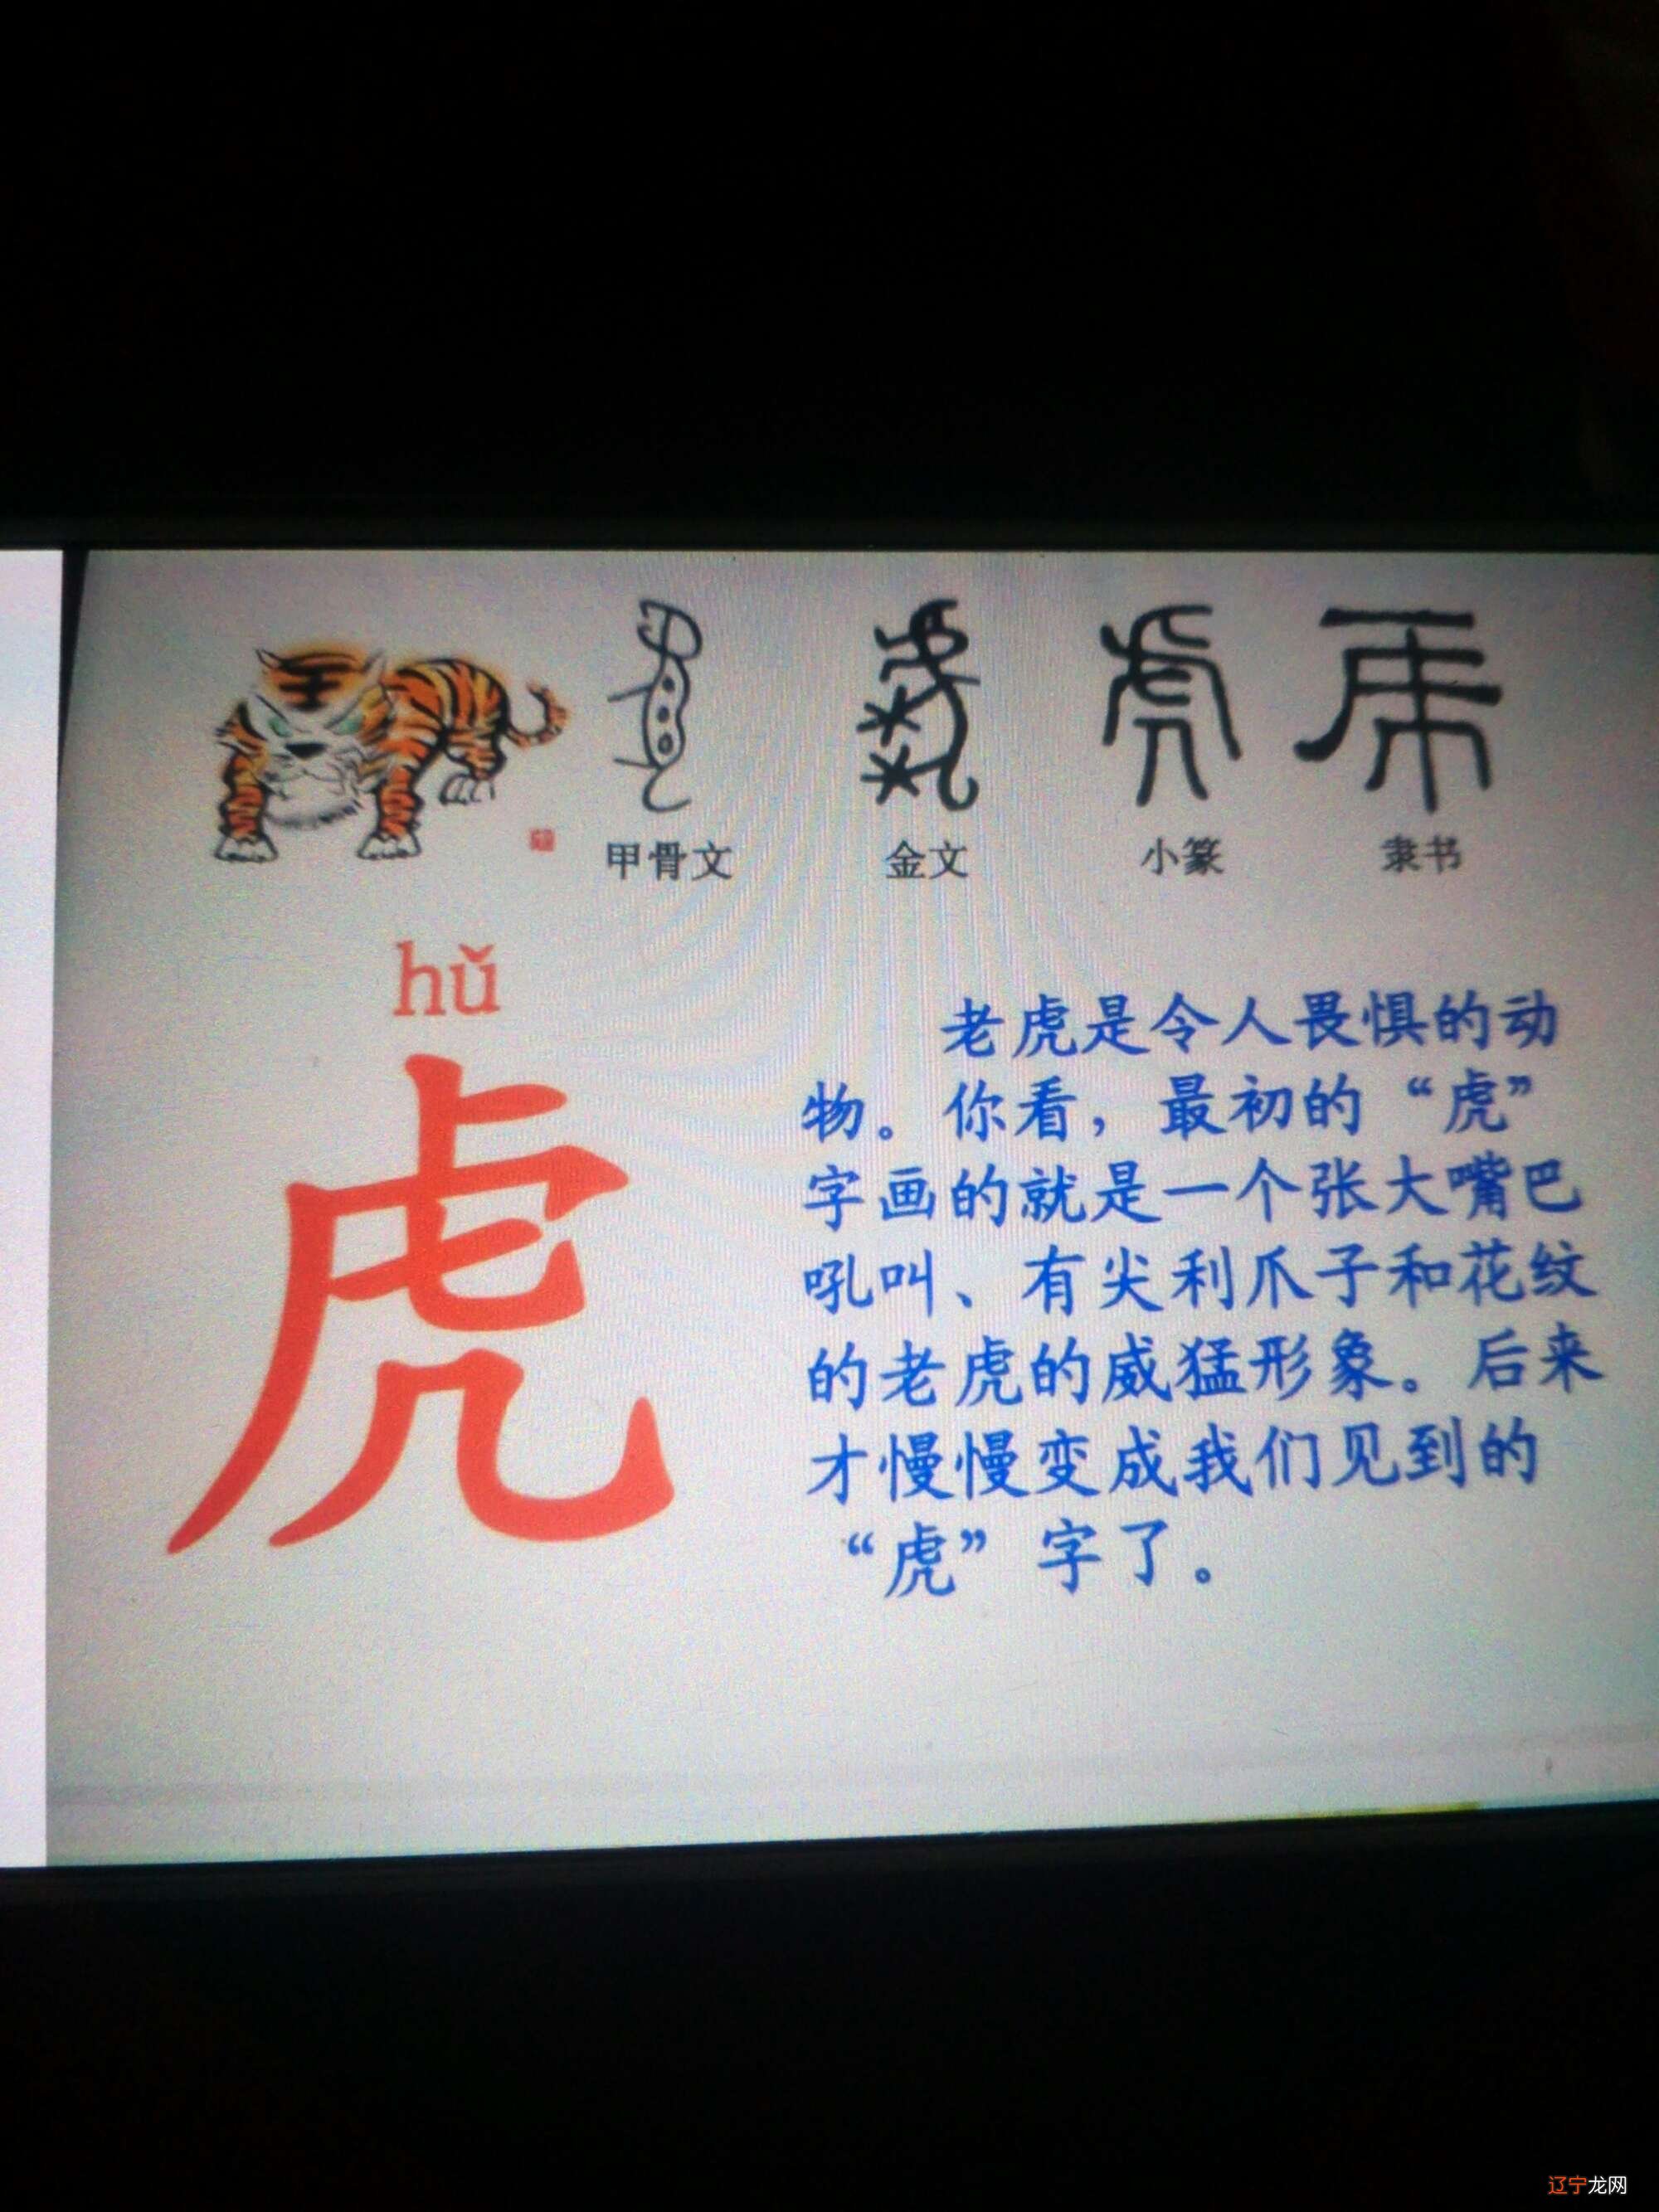 甲骨文 金文 小篆 隶书
hǔ
虎
老虎是令人畏惧的动
物。你看，最初的“虎”
字画的就是一个张大嘴巴
吼叫、有尖利爪子和花纹
的老虎的威猛形象。后来
才慢慢变成我们见到的
“虎”字了。
辽宁龙网